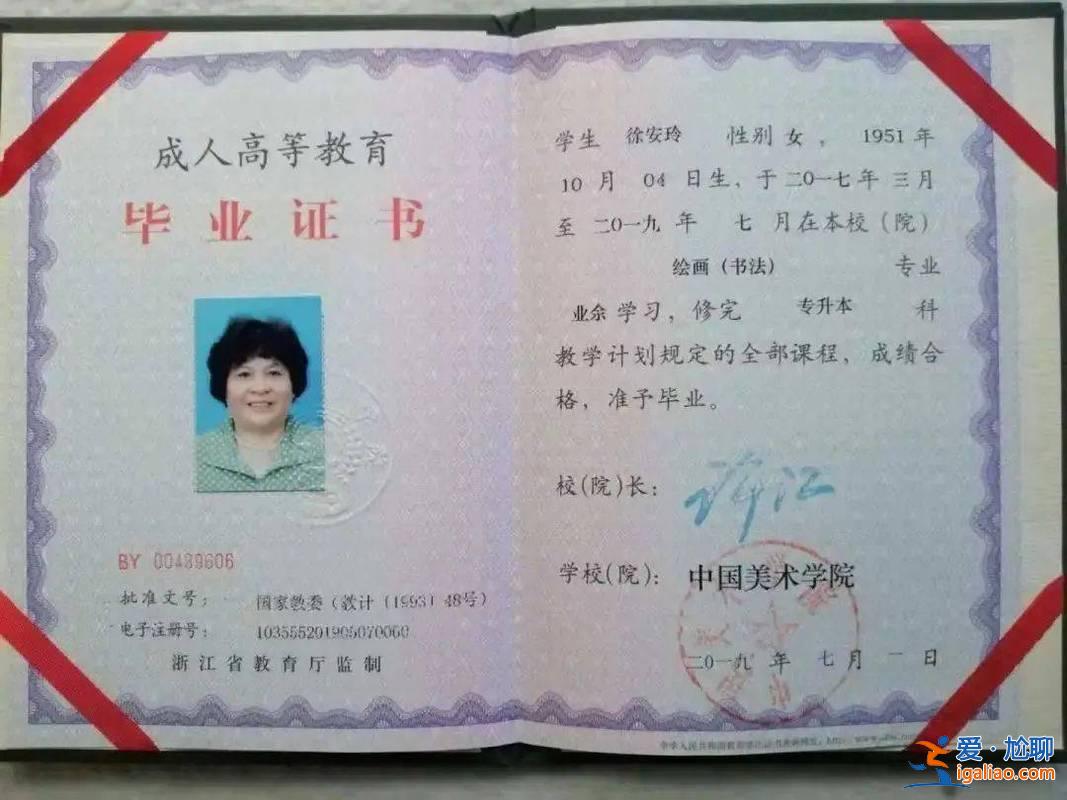 成人高等教育
毕业证书
BY 00489606
批准文号： 国家教委（教计（1993）48号）
电子注册号： 103555201905070060
浙江省教育厅监制
学生 徐安玲 性别 女，1951年
10月 04日生，于二〇一七年三月
至二〇一九年 七 月在本校（院）
绘画（书法） 专业
业余学习，修完 专升本 科
教学计划规定的全部课程，成绩合
格，准予毕业。
校(院)长：
学校(院)：中国美术学院
二〇一九年 七月 一日
爱·尴聊
igaliao.com